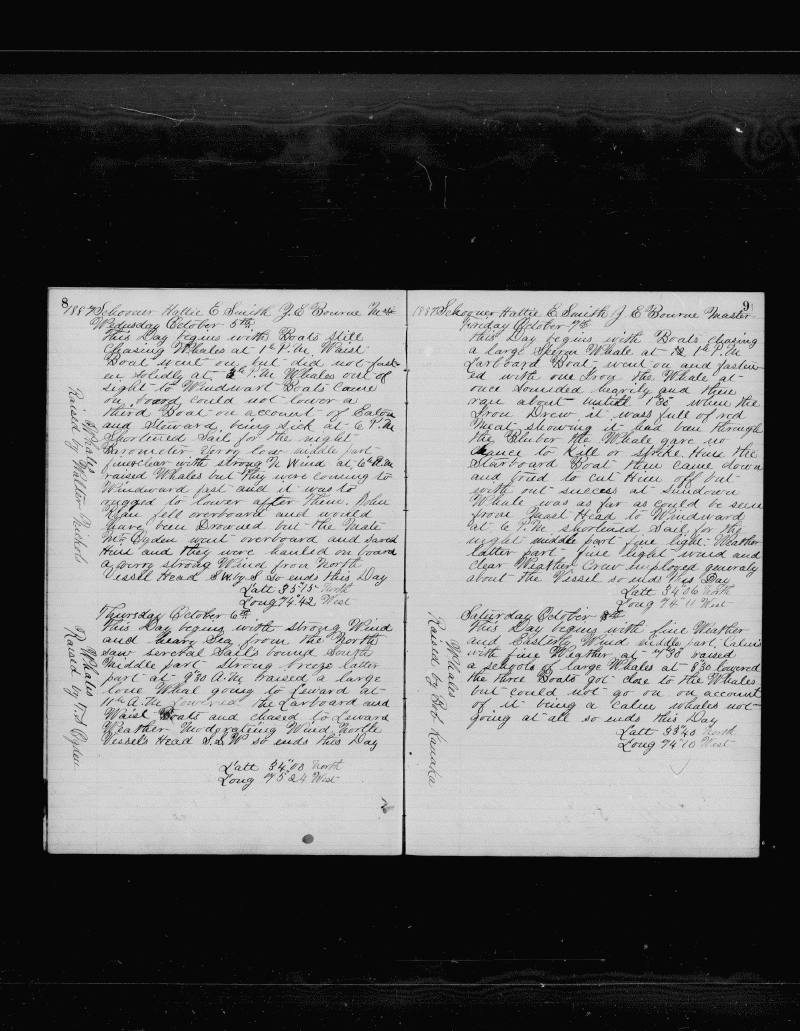 8
1887 Schooner Hattie E Smith J. E Bourne Mast
Wednsday October 5th
This Day begins with Boats still
Chasing Whales at 1th P.M. Waist
Boat went on but did not fast
en solidly at 5th P.M Whales out of
sight to Windwart Boats Came
on board could not lower a
therd Boat on account of Eaton
and Steward being sick at 6 P.M
Shortened Sail for the night
Barometer Very low middle part
fine clear with strong N Wind at 6th A.M
raised Whales but they were coming to
Windward fast and it was to
rugged to lower after them. John
fell overboard and would
have been Drowned but the Mate
Mr Ogden went overboard and saved
Him and they were hauled on board
a very strong Wind from North
Vessel Head SW by S So ends this Day
Latt 35"15 North
Long 74"42 West
Whales
Raised by Walter Nichols
Thursday October 6th
This Day begins with strong Wind
and heavy Sea from the North
saw serveral Sails bound South
Middle part strong breeze latter
part at 9"30 A.M raised a large
lone Wheal going to Leward at
11th A.M Lowered the Larboard and
Waist Boats and chased to Leward
Weather Moderateing Wind North
Vessels Head S.S.W so ends this Day
Latt 34"03 North
Long 75"24 West
Whales
Raised by Ogden
9
1887 Schooner Hattie E Smith J. E Bourne Master
Friday October 7th
This Day begins with Boats chasing
a large Sperm Whale at 1th P.M
Larboard Boat went on and fasten
ed with one Iron the Whale at
once sounded hearity and then
ran about untill 1"30 when the
Iron Drew it wass full of red
Meat showing it had been through
the Bluber the Whale gave no
chance to Kill or strike Him the
Starboard Boat then came down
and tried to cut Him off but
with out success at sundown
Whale was as far as could be seen
from Mast Head to Windward
at 6 P.M shortened Sail for the
night middle part fine light Weather
latter part fine light wind and
clear Weather Crew employed generaly
about the Vessel so ends this Day
Latt 34"06 North
Long 74"11 West
Saturday October 8th
This Day begins with fine Weather
and Easterly Wind middle part Calm
with fine Weather at 7"30 raised
a schools of large Whales at 8"30 lowered
the three Boats got close to the Whales
but could not go on on account
of it being a Calm whales not
going at all so ends this Day
Latt 33"43 North
Long 74"10 West
Whales
Raised by Bob Kanaka